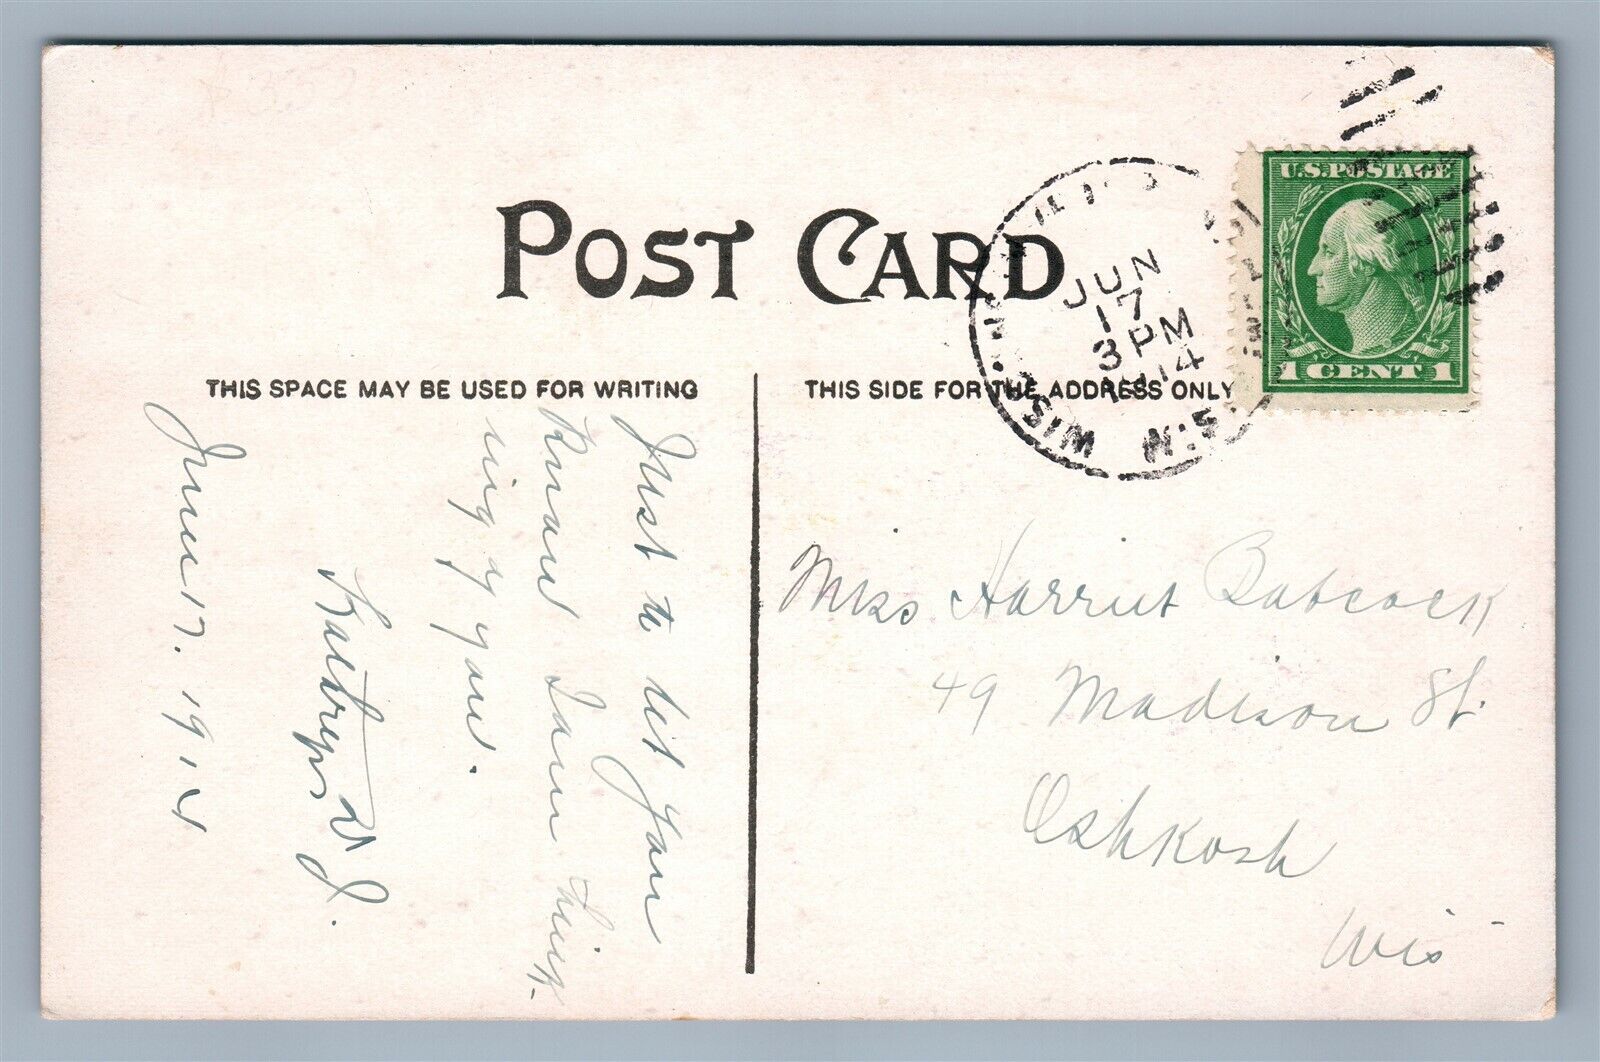 POST CARD
THIS SPACE MAY BE USED FOR WRITING
THIS SIDE FOR THE ADDRESS ONLY
U.S. POSTAGE
1 CENT 1
JUN
17
3 PM
1914
WIS.
Just to let you
know I am think-
ing of you.
Kathryn W J.
June 17. 1914
Miss Harriet Babcock
49 Madison St.
Oshkosh
Wis